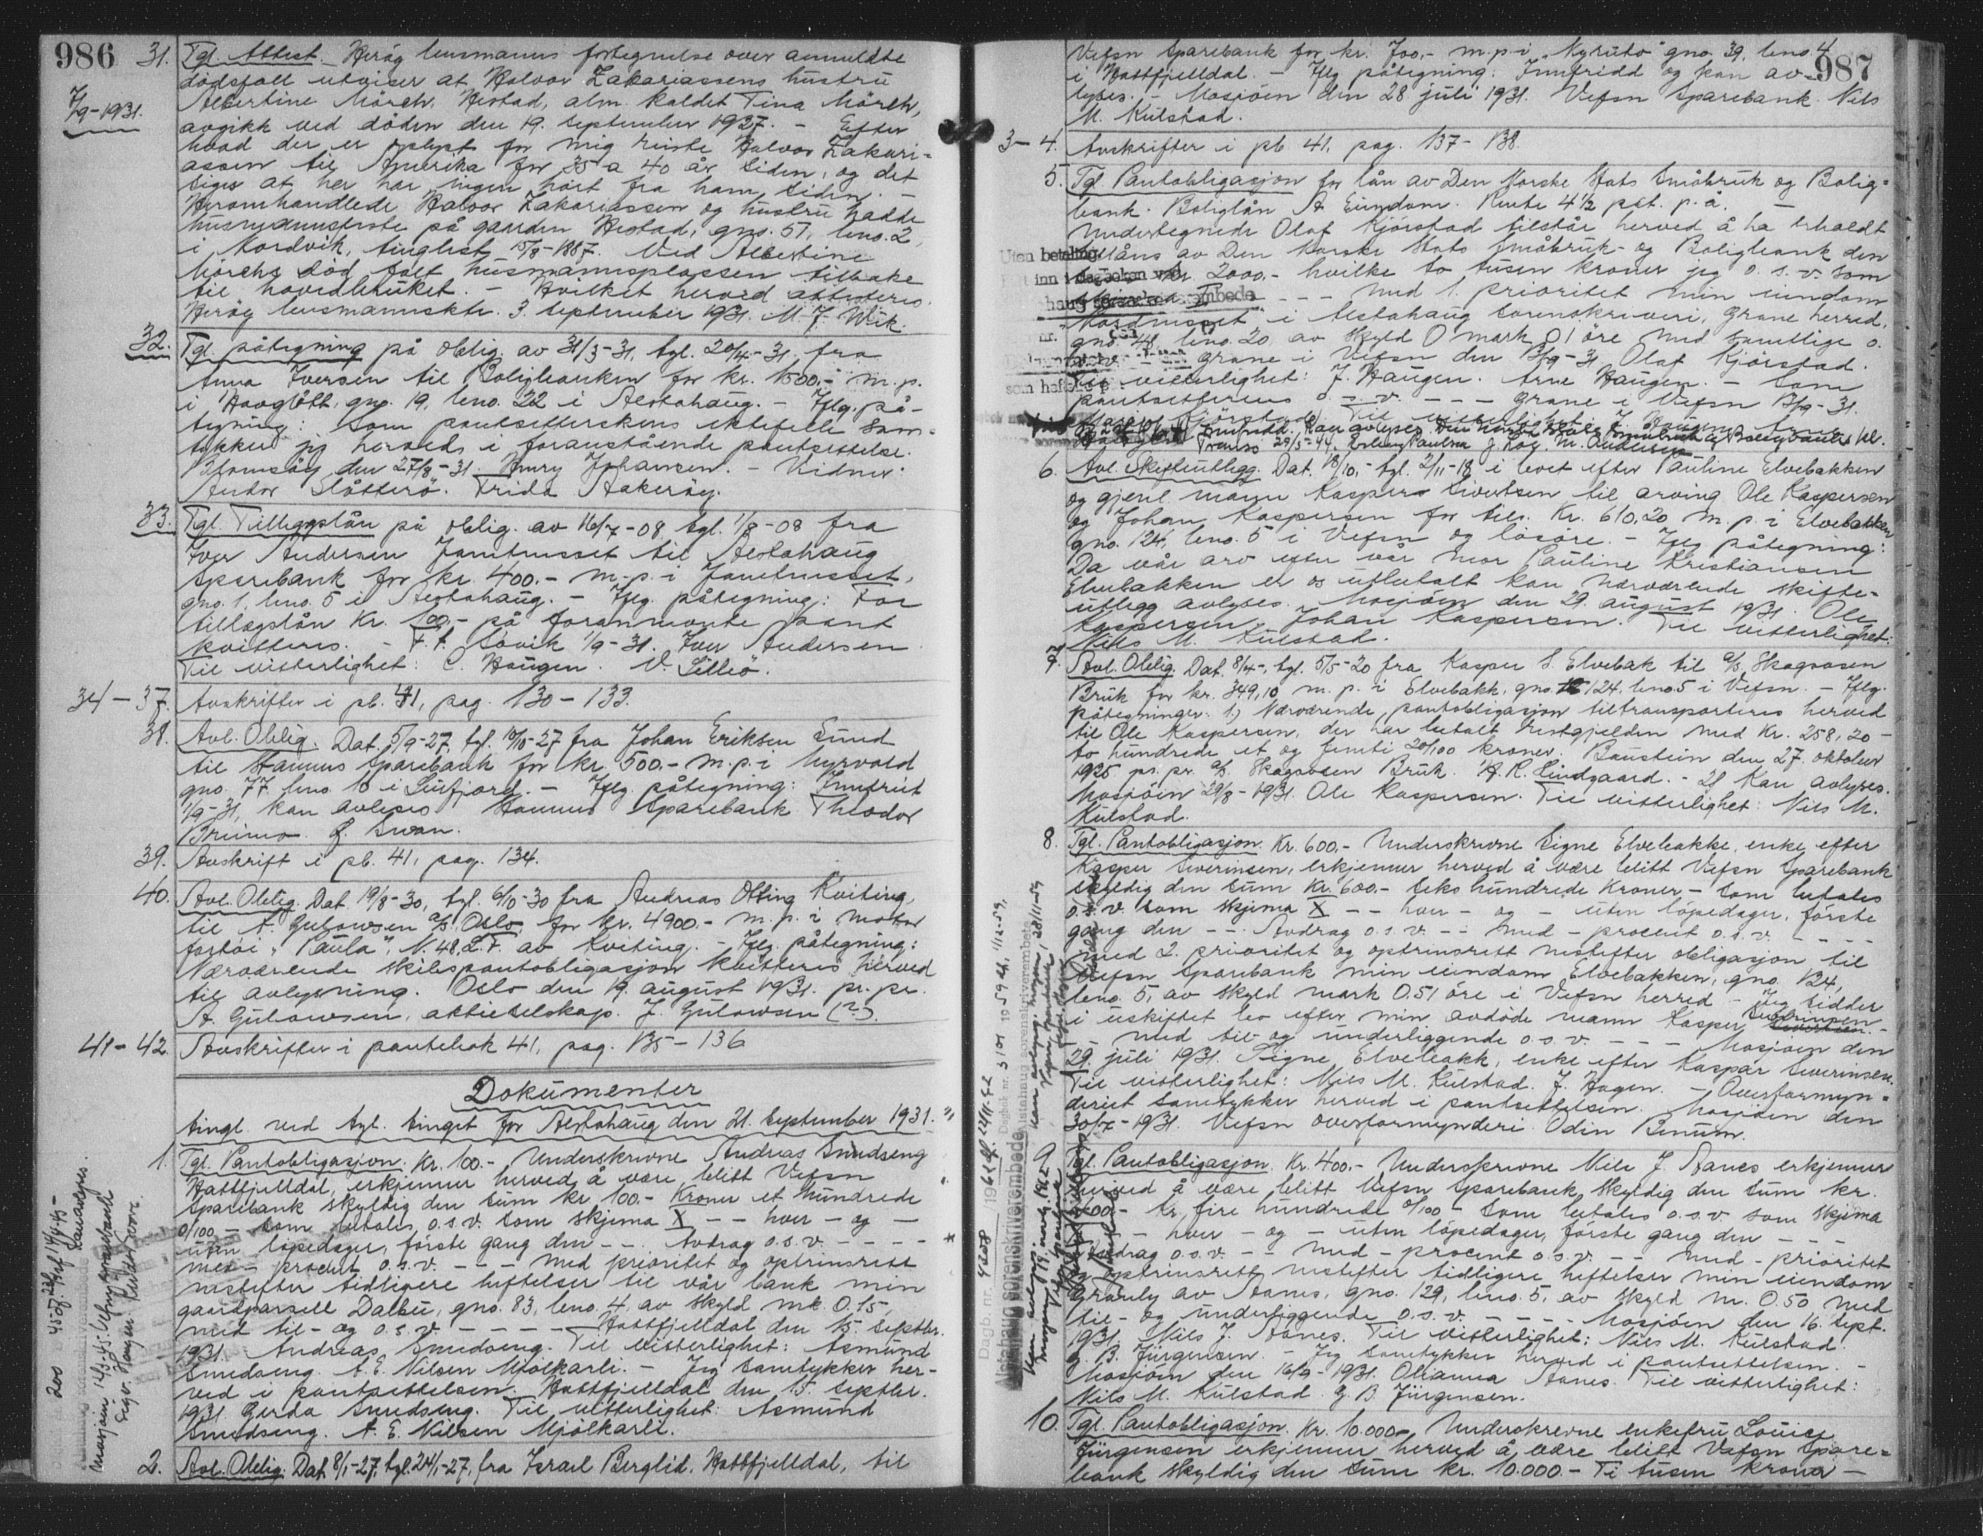 986
31. Tgl. Attest. Herøy lensmanns fortegnelse over anmeldte
dødsfall utviser at Halvor Zakariassens hustru
7/9-1931.
Albertine Mörch, Hestad, alm. kaldet Tina Mörch,
avgikk ved døden den 19. september 1927. - Efter
hvad der er oplyst for mig reiste Halvor Zakari-
assen til Amerika for 35 a 40 år siden, og det
siges at her har ingen hørt fra ham siden. -
Heromhandlede Halvor Zakariassen og hustru hadde
husmannsfeste på gaarden Hestad, gno. 51, bno. 2,
i Nordvik, tinglest 15/8-1887. Ved Albertine
Mörchs död falt husmannsplassen tilbake
til hovedbruket. - Hvilket herved attesteres.
Herøy lensmannsktr. 3. september 1931. M. J. Wik.
32. Tgl. påtegning på oblig. av 31/3-31, tgl. 20/4-31. fra
Anna Iversen til Boligbanken for kr. 1500,- m.p.
i Haugtótt, gno. 19, bno. 22 i Alstahaug. - Iflg. på-
tegning: Som pantsetterskens ektefelle sam-
tykker jeg herved i foranstående pantsettelse.
den 27/8-31 Henry Johansen. - Vidner:
Andor Slåtterö. Frida Aakeröy.
33. Tgl. Tilleggslån på oblig. av 16/7-08 tgl. 1/8-08 fra
Iver Andersen til Alstahaug
Sparebank for kr. 400.- m.p.i
gno. 1, bno. 5 i Alstahaug. - Iflg. påtegning: For
tillegslån kr. 100,- på foranmente pant
kvitteres. - F. t. Søvik 1/9-31. Iver Andersen
Til vitterlighet: C. Haugen. V. Lilleö.
34-37. Avskrifter i pb. 41, pag. 130-133.
38. Avl. Oblig. Dat. 5/9-27, tgl. 10/10-27 fra Johan Eriksen Sund
til Stamnes Sparebank for kr. 500.- m.p.i Myrvold
gno. 77 bno. 10 i Leirfjord. - Iflg. påtegning: Innfridt
1/9-31, kan avleses Stamnes Sparebank Theodor
Brunvo. J. Swan.
39. Avskrift i pb. 41, pag. 134.
40. Avl. Oblig. Dat. 19/8-30, tgl. 6/10-30 fra Andreas Olsing Kviting,
til A. Gulowsen a/s Oslo for kr. 4900.- m.p. i motor
fartöi "Paula", N. 48. L.F. av Kviting. - Iflg. påtegning:
Nærværende skibspantobligasjon kvitteres herved
til avlysning. Oslo den 19. august 1931. pr. pr.
A. Gulowsen, aktieselskap. J. Gulowsen (?).
41-42. Avskrifter i pantebok 41, pag. 135-136
Dokumenter
tingl. ved tgl. tinget for Alstahaug den 21. september 1931.
1. Tgl. Pantobligasjon. Kr. 100.- Underskrevne Andreas Smedseng
Hattfjelldal, erkjenner herved å være blitt Vefsn
Sparebank skyldig den sum kr. 100.- Kroner et hundrede
0/100 - som betales o.s.v. som skjema X - - hver - og -
uten löpedager, förste gang den - - . Avdrag o.s.v. - - - -
med - procent o.s.v. - - - med prioritet og optrinsrett
nestefter tidligere heftelser til vår bank min
gaardparsell Dalbu, gno. 83, bno. 4, av skyld mk. 0.15
med til- og o.s.v. - - - - Hattfjelldal den 15. septbr.
1931. Andreas Smedseng. Til vitterlighet: Asmund
Smedseng. A. E. Nilsen Mjölkarli. - Jeg samtykker her-
ved i pantsettelsen. Hattfjelldal den 15. septbr.
1931. Gerda Smedseng. Til vitterlighet: Asmund
Smedseng. A. E. Nilsen Mjölkarli.
2. Avl. Oblig. Dat. 8/1-27, tgl. 24/1-27, fra Israel Berglid, Hattfjelldal, til
987
Vefsn Sparebank for kr. 700,- m.p.i "Nyrud" gno. 39, bno. 4
i Hattfjelldal. - Iflg. påtegning: Innfridd og kan av-
lyses. - Mosjöen den 28 juli 1931. Vefsn Sparebank. Nils
M. Kulstad.
3-4. Avskrifter i pb 41, pag. 137-138.
5. Tgl. Pantobligasjon for lån av Den Norske Stats Småbruk og Bolig-
bank. Boliglån A Eiendom. Rente 4½ pct. p.å.
Undertegnede Olaf Kjörstad tilstår herved å ha erholdt
tillåns av Den Norske Stats Småbruk- og Boligbank den
sum kr. 2000.- hvilke to tusen kroner jeg o.s.v. som
- - - med 1. prioritet min eiendom
i Alstahaug sorenskriveri, Grane herred,
gno. 48, bno. 20, av skyld 0 mark 01 öre med samtlige o.
s.v. - - Grane i Vefsn den 13/9-31. Olaf Kjörstad.
Til vitterlighet: J. Haugen. Arne Haugen. - Som
pantsetterens o.s.v. - - - Grane i Vefsn 13/9-31.
Kjörstad. Til vitterlighet: J. Haugen. Arne
Haugen. Innfridd. Kan avlyses. Den Norske Stats Småbruk og Boligbank
29/3-44. Erling Paulsen
6. Avl. Skifteutlegg. Dat. 18/10-, tgl. 2/11-18 i boet efter Pauline Elvebakken
og gjenl. mann Kasper Sivertsen til arving Ole Kaspersen
og Johan Kaspersen for tils. kr. 610.20 m.p.i Elvebakken
gno. 124, bno. 5 i Vefsn og lösöre. - Iflg. påtegning:
Da vår arv efter vår mor Pauline Kristiansen
Elvebakken er os utbetalt kan nærværende skifte-
utlegg avlyses. Mosjöen den 29. august 1931. Ole
Kaspersen. Johan Kaspersen. Til vitterlighet:
Nils M. Kulstad.
7. Avl. Oblig. Dat. 8/4-, tgl. 5/5-20 fra Kasper S. Elvebak til a/s Skogaasen
Bruk for kr. 349,10 m.p.i Elvebakk, gno. 124, bno 5 i Vefsn. - Iflg.
påtegninger: 1) Nærværende pantobligasjon tiltransporteres herved
til Ole Kaspersen, der har betalt restgjelden med kr. 258,20 -
to hundrede et og femti 20/100 kroner. den 27. oktober
1925 pr. pr. a/s Skogaasen Bruk. H. R. Lindgaard. - 2) Kan avlyses.
Mosjöen 29/8-1931. Ole Kaspersen. Til vitterlighet: Nils M.
Kulstad.
8. Tgl. Pantobligasjon. Kr. 600.- Underskrevne Signe Elvebakk, enke efter
Kasper Severinsen, erkjenner herved å være blitt Vefsn Sparebank
skyldig den sum kr. 600.- Seks hundrede kroner - som betales
o.s.v. som skjema X - - hver - og - uten löpedager, förste
gang den - -. Avdrag o.s.v. - - med - procent o.s.v. - - - -
med 2. prioritet og optrinsrett nestefter obligasjon til
Vefsn Sparebank min eiendom Elvebakken, gno. 124,
bno. 5, av skyld mark 0.51 öre i Vefsn herred - Jeg sidder
i uskiftet bo efter min avdöde mann Kasper Severinsen.
- med til- og underliggende o.s.v. - - - Mosjöen den
29. juli 1931. Signe Elvebakk, enke efter Kasper Severinsen.
Til vitterlighet: Nils M. Kulstad. J. Hagen. - Overformyn-
deriet samtykker herved i pantsettelsen. Mosjöen den
30/7-1931. Vefsn overformynderi Odin Benum.
9. Tgl. Pantobligasjon. Kr. 400.- Underskrevne Nils J. Aanes erkjenner
herved å være blitt Vefsn Sparebank skyldig den sum kr.
400.- kr. fire hundrede 0/100 - som betales o.s.v. som skjema
- hver - og - uten löpedager, förste gang den - - -
Avdrag o.s.v. - - med - procent o.s.v. - - med - prioritet
og optrinsrett nestefter tidligere heftelser min eiendom
Granly av Aanes, gno. 129, bno. 5, av skyld m. 0.50 med
til- og underliggende o.s.v. - - - - Mosjöen den 16. sept.
1931. Nils J. Aanes. Til vitterlighet: Nils M. Kulstad.
G. B. Jürgensen. - Jeg samtykker herved i pantsettelsen. -
Mosjöen den 16/9-1931. Olianna Aanes. Til vitterlighet:
Nils M. Kulstad. G. B. Jürgensen.
10. Tgl. Pantobligasjon. Kr. 10.000.- Underskrevne enkefru Louise
Jürgensen erkjenner herved å være blitt Vefsn Spare-
bank skyldig den sum kr. 10.000.- Ti tusen kroner -